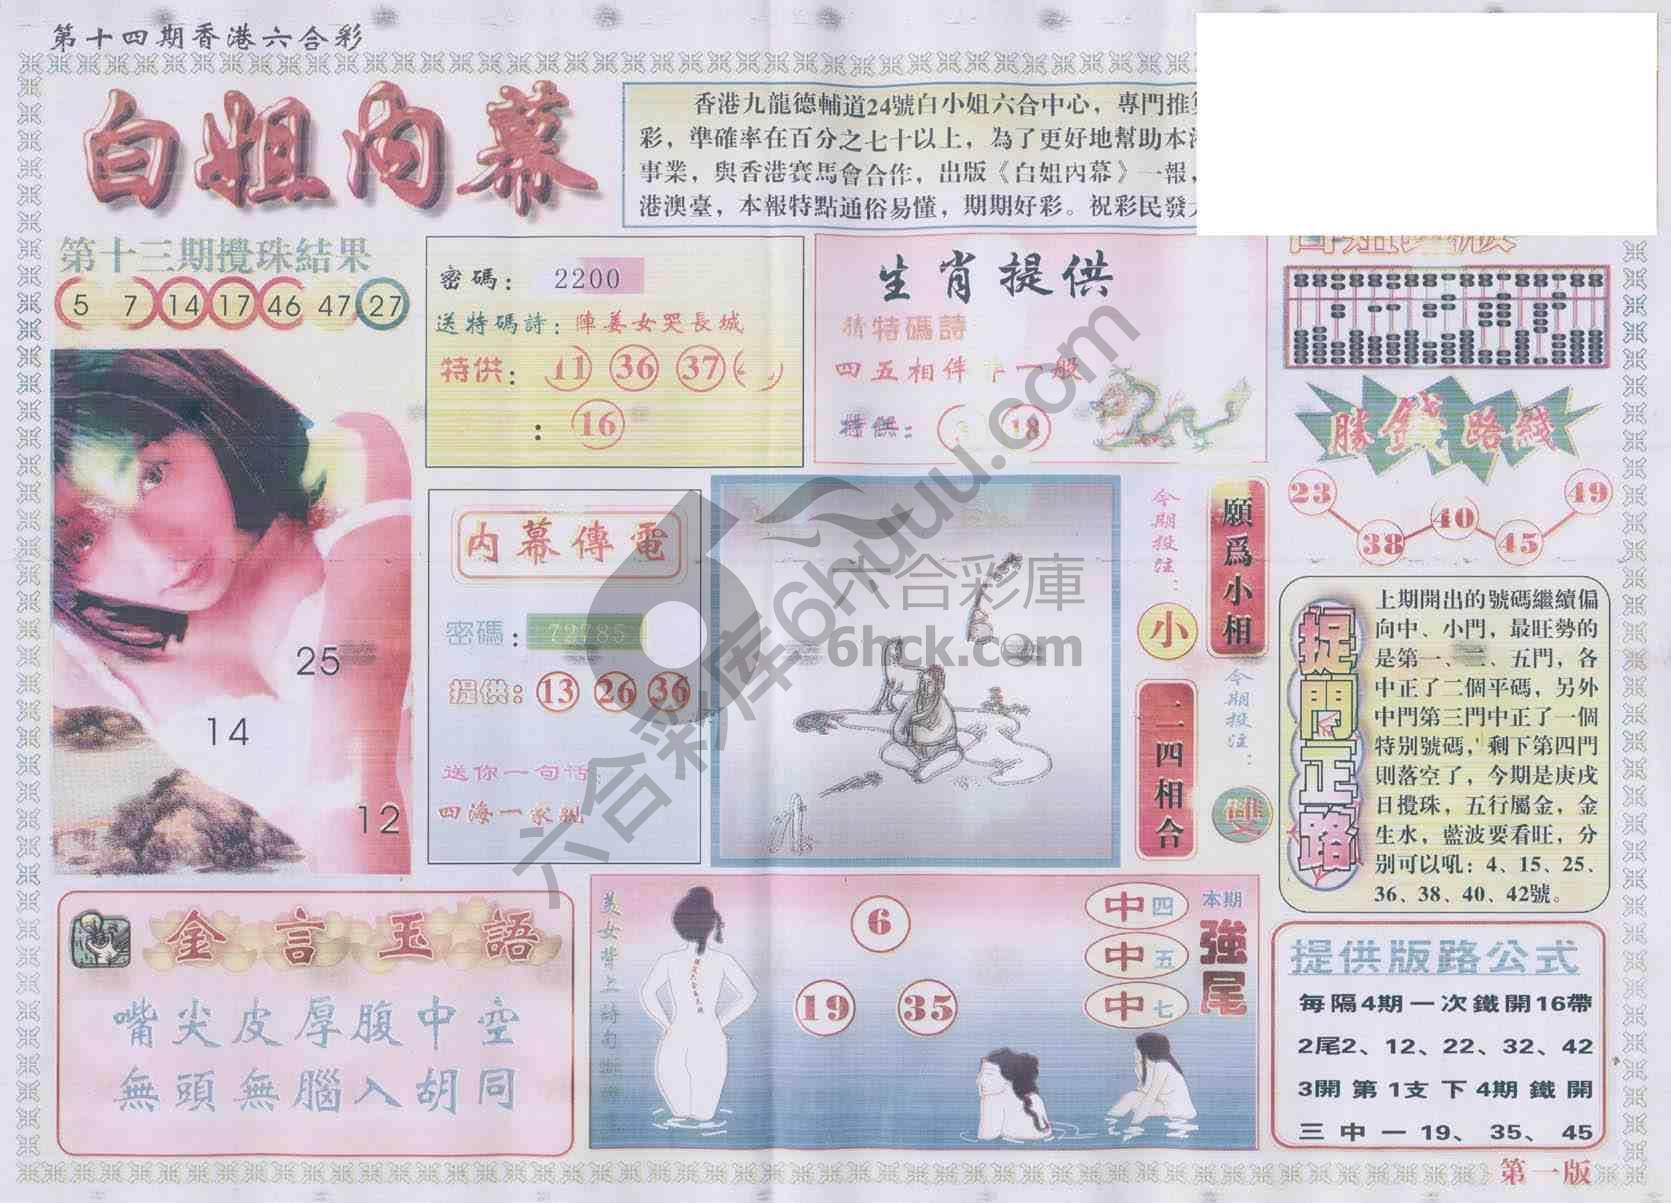 第十四期香港六合彩
白姐内幕
香港九龍德輔道24號白小姐六合中心，專門推
彩，準確率在百分之七十以上，為了更好地幫助本
事業，與香港賽馬會合作，出版《白姐內幕》一報，
港澳臺，本報特點通俗易懂，期期好彩。祝彩民發
第十三期攪珠結果
5 7 14 17 46 47 27
25
14
12
密碼： 2200
送特碼詩：陣姜女哭長城
特供： 11 36 37
： 16
生肖提供
猜特碼詩
四五相伴 一般
特供： 18
勝錢路綫
23 38 40 45 49
内幕傳電
密碼： 79785
提供：13 26 36
送你一句话：
四海一家親
今期投注：
小
願爲小相
二四相合
今期投注：
雙
捉門正路
上期開出的號碼繼續偏
向中、小門，最旺勢的
是第一、二、五門，各
中正了二個平碼，另外
中門第三門中正了一個
特别號碼，剩下第四門
则落空了，今期是庚戌
日攪珠，五行屬金，金
生水，藍波要看旺，分
别可以吼：4、15、25、
36、38、40、42號。
金言玉語
嘴尖皮厚腹中空
無頭無腦入胡同
美女背上詩句
6
19 35
中四
中五
中七
本期
強尾
提供版路公式
每隔4期一次鐵開16帶
2尾2、12、22、32、42
3開第1支下4期鐵開
三中一19、35、45
第一版
六合彩库6huuu.com
六合彩庫
6hck.com